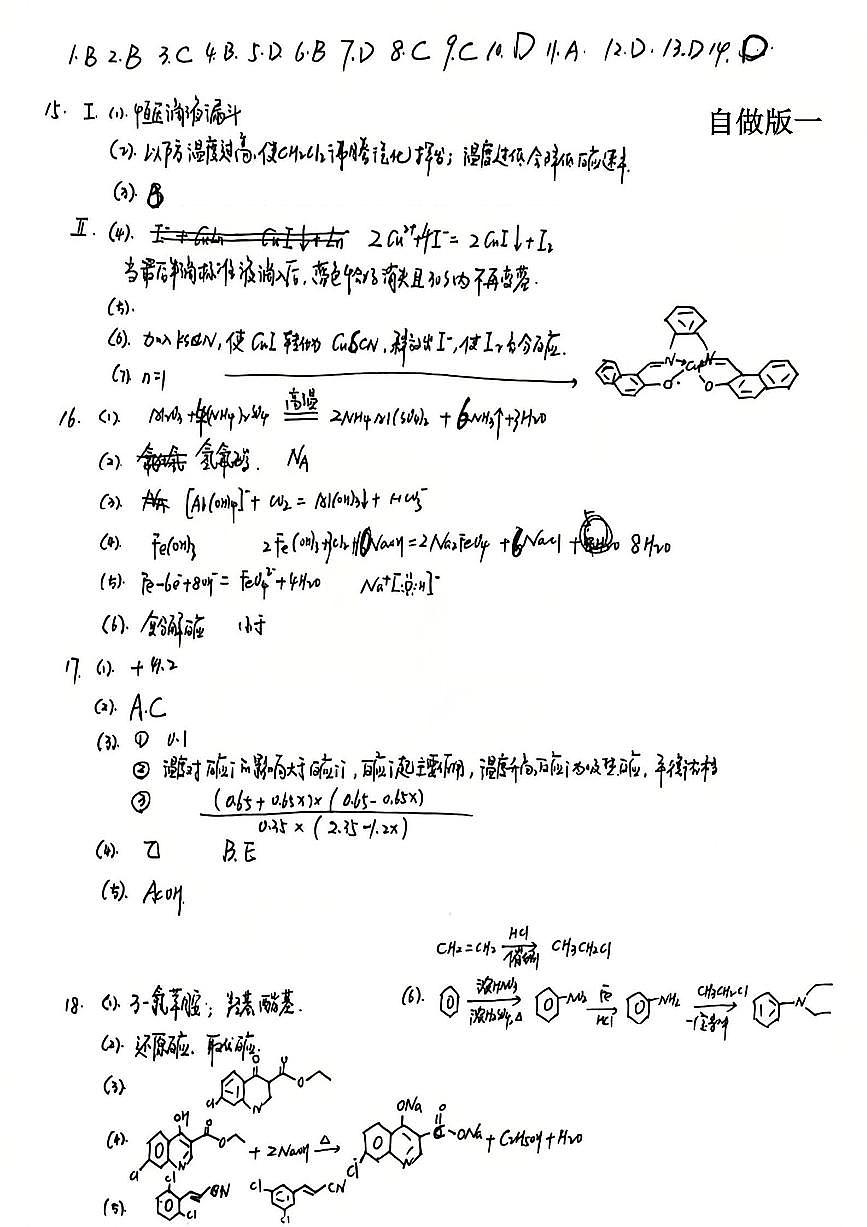 1.B 2.B 3.C 4.B. 5.D 6.B 7.D 8.C 9.C 10.D 11.A. 12.D. 13.D 14.D
自做版一
15. I. (1). 恒压滴液漏斗
(2). 以防温度过高,使CH2Cl2沸腾汽化挥发; 温度过低会降低反应速率.
(3). B
II. (4). 2Cu²⁺+4I⁻=2CuI↓+I₂
当最后半滴标准液滴入后,蓝色恰好消失且30s内不再变蓝.
(5).
(6). 加入KSCN,使CuI转化为CuSCN,释放出I⁻,使I₂充分反应.
(7) n=1
N N Cu O O
16. (1). Al₂O₃+4(NH₄)₂SO₄ 高温 2NH₄Al(SO₄)₂+6NH₃↑+3H₂O
(2). 氢氟酸. NA
(3). [Al(OH)₄]⁻+CO₂=Al(OH)₃↓+HCO₃⁻
(4). Fe(OH)₃ 2Fe(OH)₃+3Cl₂+10NaOH=2Na₂FeO₄+6NaCl+8H₂O
(5). Fe-6e⁻+8OH⁻=FeO₄²⁻+4H₂O Na⁺[:Ö:H]⁻
(6). 复分解反应 小于
17. (1). +41.2
(2). A.C
(3). ① 0.1
② 温度对反应i的影响大于反应ii,反应i起主要作用,温度升高,反应i为吸热反应,平衡
③ (0.65+0.65x)×(0.65-0.65x)
0.35×(2.35-1.2x)
(4). 乙 B.E
(5). AcOH
CH₂=CH₂ HCl 催化剂 CH₃CH₂Cl
18. (1). 3-氯苯胺; 羟基 酯基.
(6). 浓HNO₃ 浓H₂SO₄,△ NO₂ Fe HCl NH₂ CH₃CH₂Cl 一定条件 N
(2). 还原反应. 取代反应.
(3) Cl N O O O
(4). OH O O Cl N +2NaOH △ ONa O C-ONa Cl N +C₂H₅OH+H₂O
(5) Cl Cl CN Cl Cl CN